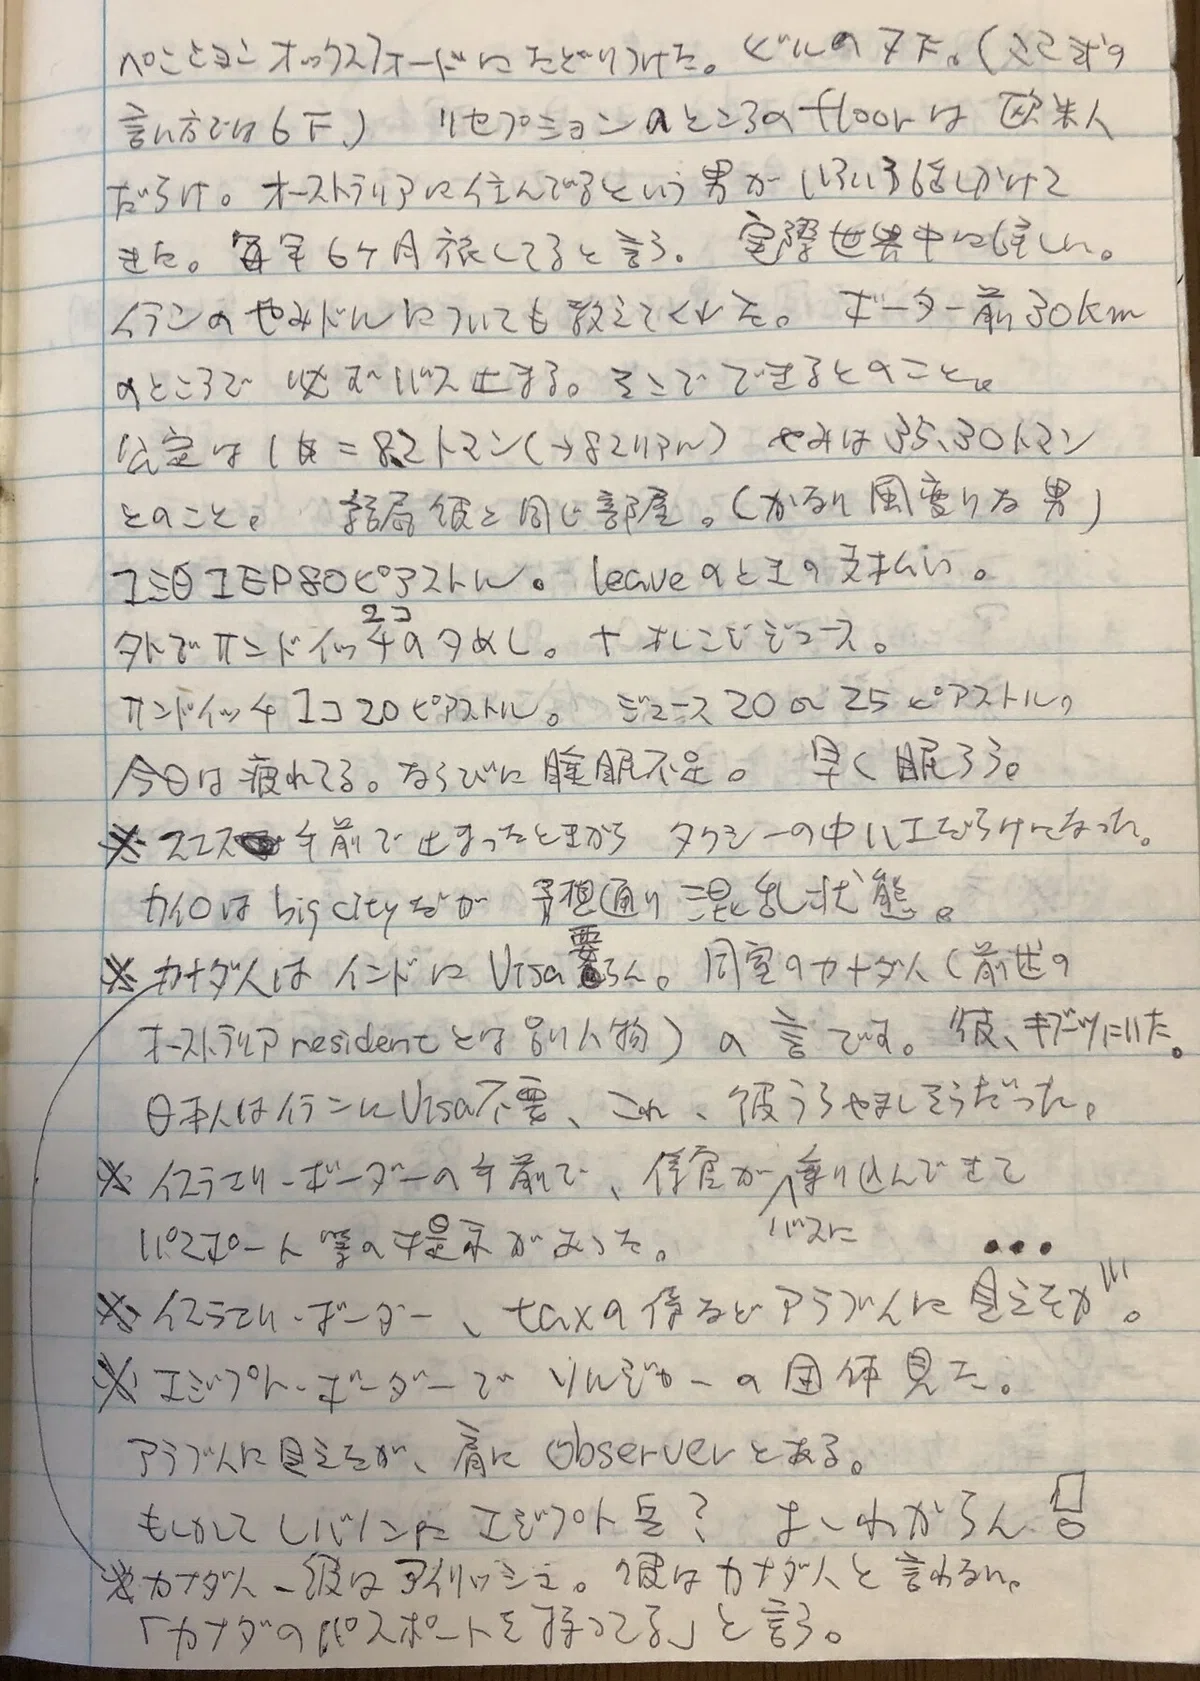 ペンションオックスフォードにたどりつけた。ビルの7F。(ここ式の
言い方では6F.) リセプションのところのfloorは欧米人
だらけ。オーストラリアに住んでるという男がいろいろ話しかけて
きた。毎年6ケ月旅してると言う。実際世界中に詳しい。
イランのやみドルについても教えてくれた。ボーダー前30km
のところで必ずバス止まる。そこでできるとのこと。
公定は1$=8.2トマン(→82リアル) やみは35、30トマン
とのこと。 結局彼と同じ部屋。(かなり風変りな男)
1泊1EP80ピアストル。leaveのときの支払い。
外でサンドイッチ2コの夕めし。+オレンジジュース。
サンドイッチ1コ20ピアストル。 ジュース20〜25ピアストル。
今日は疲れてる。ならびに睡眠不足。 早く眠ろう。
※スエズ手前で止まったときから タクシーの中ハエだらけになった。
カイロはbig cityだが 予想通り混乱状態。
※カナダ人はインドにVisa要らん。同室のカナダ人(前述の
オーストラリアresidentとは別人物)の言です。彼、キブーツにいた。
日本人はイランにVisa不要、これ、彼うらやましそうだった。
※イスラエリ・ボーダーの手前で、係官がバスに乗り込んできて
パスポート等の提示があった。
※イスラエリ・ボーダー、taxの係などアラブ人に見えそが!!!。
※エジプト・ボーダーでソルジャーの団体見た。
アラブ人に見えそが、肩にobserverとある。
もしかしてレバノンにエジプト兵? よーわからん
※カナダ人-彼はアイリッシュ。彼はカナダ人と言わない。
「カナダのパスポートを持ってる」と言う。